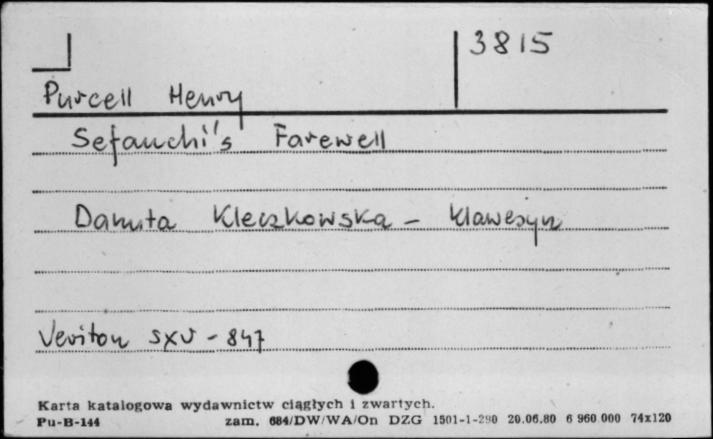 3815
Purcell Henry
Sefauchi's Farewell
Danuta Kleczkowska - klawesyn
Veriton SXV - 847
Karta katalogowa wydawnictw ciągłych i zwartych.
Pu-B-144 zam. 684/DW/WA/On DZG 1501-1-290 20.06.80 6 960 000 74x120